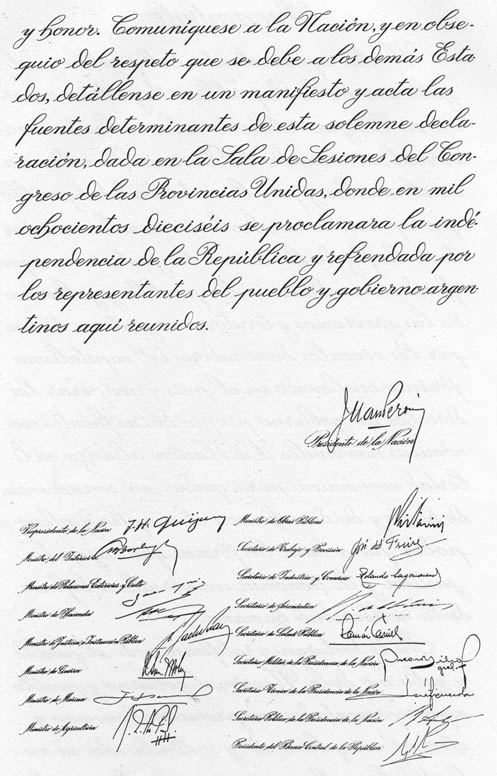 y honor. Comuníquese a la Nación, y en obse-
quio del respeto que se debe a los demás Esta
dos, detállense en un manifiesto y acta las
fuentes determinantes de esta solemne decla-
ración, dada en la Sala de Sesiones del Con-
greso de las Provincias Unidas, donde en mil
ochocientos dieciséis se proclamara la inde-
pendencia de la República y refrendada por
los representantes del pueblo y gobierno argen-
tinos aquí reunidos.
Juan Perón
Presidente de la Nación
Vicepresidente de la Nación
Ministro del Interior
Ministro de Relaciones Exteriores y Culto
Ministro de Hacienda
Ministro de Justicia e Instrucción Pública
Ministro de Guerra
Ministro de Marina
Ministro de Agricultura
Ministro de Obras Públicas
Secretario de Trabajo y Previsión
Secretario de Industria y Comercio
Secretario de Aeronáutica
Secretario de Salud Pública
Secretario Militar de la Presidencia de la Nación
Secretario Técnico de la Presidencia de la Nación
Secretario Político de la Presidencia de la Nación
Presidente del Banco Central de la República